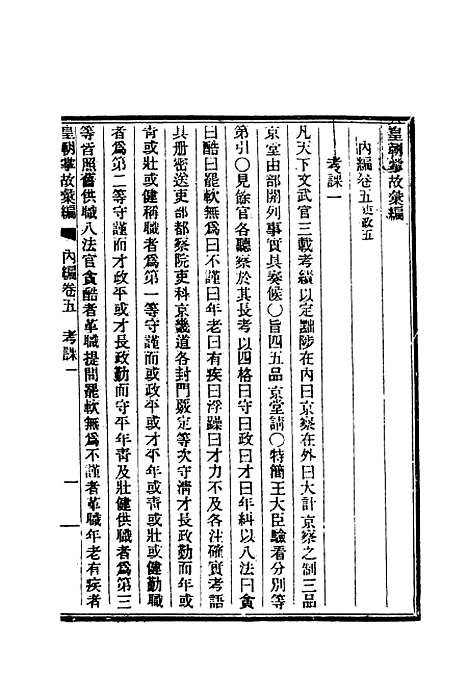 皇朝掌故彙編
內編卷五吏政五
考課一
凡天下文武官三載考績以定黜陟在內曰京察在外曰大計京察之制三品
京堂由部開列事實具奏候〇旨四五品京堂請〇特簡王大臣驗看分別等
第引〇見餘官各聽察於其長考以四格曰守曰政曰才曰年糾以八法曰貪
曰酷曰罷軟無爲曰不謹曰年老曰有疾曰浮躁曰才力不及各注確實考語
具册密送吏部都察院吏科京畿道各封門嚴定等次守淸才長政勤而年或
靑或壯或健稱職者爲第一等守謹而或政平或才平年或靑或壯或健勤職
者爲第二等守謹而才政平或才長政勤而守平年靑及壯健供職者爲第三
等皆照舊供職八法官貪酷者革職提問罷軟無爲不謹者革職年老有疾者
皇朝掌故彙編 內編卷五 考課一 一